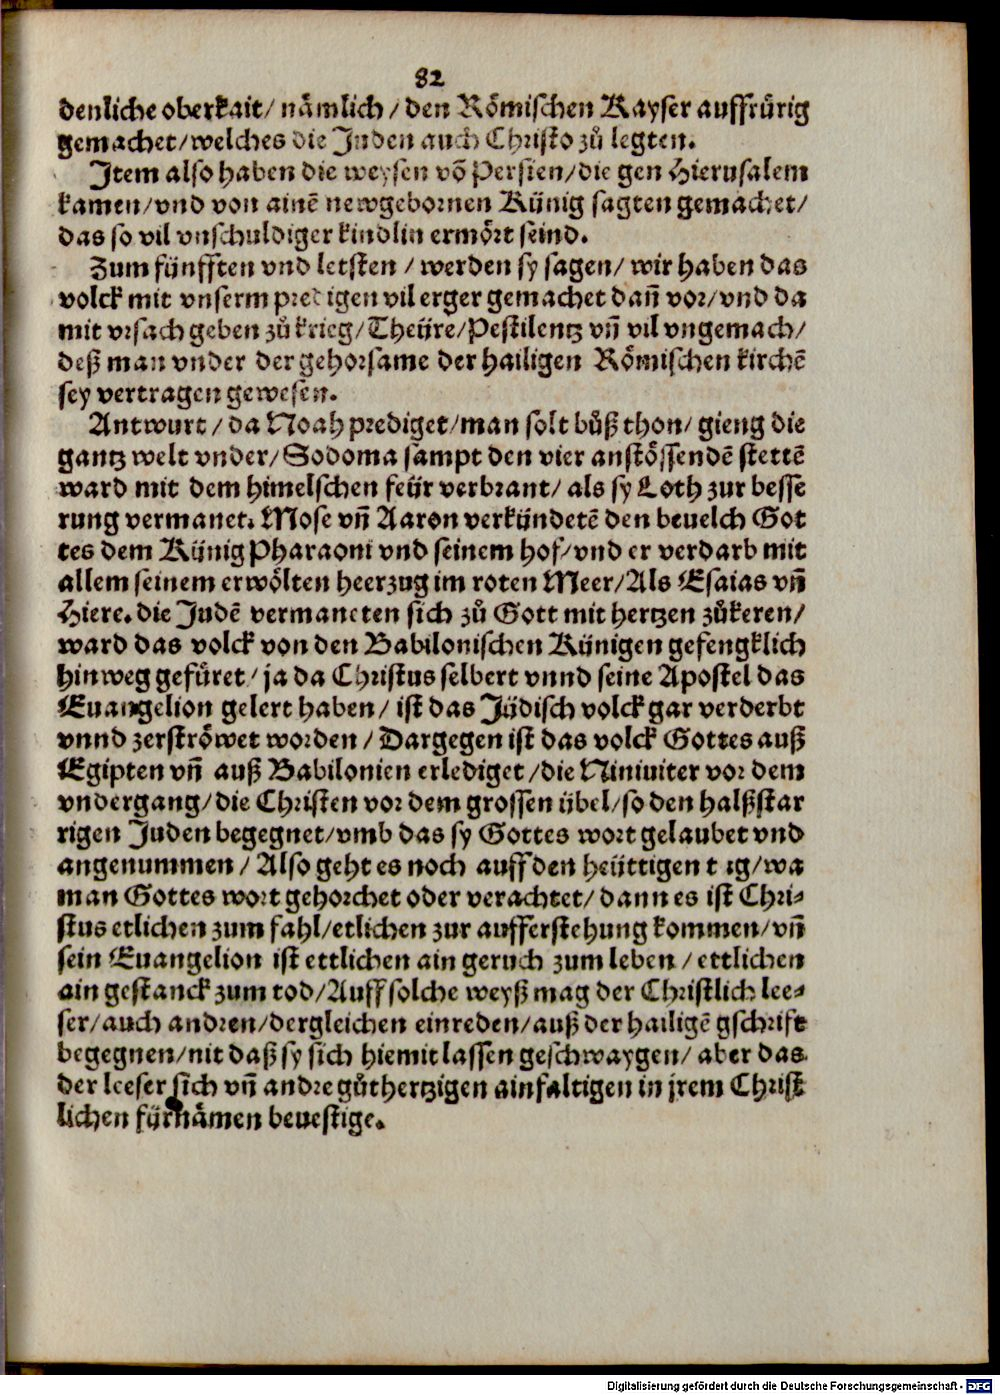 82
denliche oberkait/ nämlich/ den Römischen Kayser auffrürig
gemachet/welches die Juden auch Christo zů legten.
Item also haben die weysen võ Persien/die gen Hierusalem
kamen/vnd von ainẽ newgebornen Künig sagten gemachet/
das so vil vnschuldiger kindlin ermört seind.
Zum fünfften vnd letsten / werden sy sagen/ wir haben das
volck mit vnserm predigen vil erger gemachet dañ vor/vnd da
mit vrsach geben zů krieg/Theüre/Pestilentz vñ vil vngemach/
deß man vnder der gehorsame der hailigen Römischen kirchẽ
sey vertragen gewesen.
Antwurt / da Noah prediget/man solt bůß thon/ gieng die
gantz welt vnder/ Sodoma sampt den vier anstössendẽ stettẽ
ward mit dem himelschen feür verbrant/ als sy Loth zur besse
rung vermanet. Mose vñ Aaron verkündetẽ den beuelch Got
tes dem Künig Pharaoni vnd seinem hof/vnd er verdarb mit
allem seinem erwölten heerzug im roten Meer/Als Esaias vñ
Hiere. die Judẽ vermaneten sich zů Gott mit hertzen zůkeren/
ward das volck von den Babilonischen Künigen gefengklich
hinweg gefüret/ ja da Christus selbert vnnd seine Apostel das
Euangelion gelert haben/ ist das Jüdisch volck gar verderbt
vnnd zerströwet worden / Dargegen ist das volck Gottes auß
Egipten vñ auß Babilonien erlediget/die Niniuiter vor dem
vndergang/die Christen vor dem grossen übel/so den halßstar
rigen Juden begegnet/vmb das sy Gottes wort gelaubet vnd
angenummen / Also geht es noch auff den heüttigen tag/wa
man Gottes wort gehorchet oder verachtet/ dann es ist Chri⸗
stus etlichen zum fahl/etlichen zur aufferstehung kommen/vñ
sein Euangelion ist ettlichen ain geruch zum leben / ettlichen
ain gestanck zum tod/Auff solche weyß mag der Christlich lee⸗
ser/auch andren/dergleichen einreden/auß der hailigẽ gschrift
begegnen/nit daß sy sich hiemit lassen geschwaygen/ aber das
der leeser sich vñ andre gůthertzigen ainfaltigen in jrem Christ
lichen fürnämen beuestige.
Digitalisierung gefördert durch die Deutsche Forschungsgemeinschaft - DFG